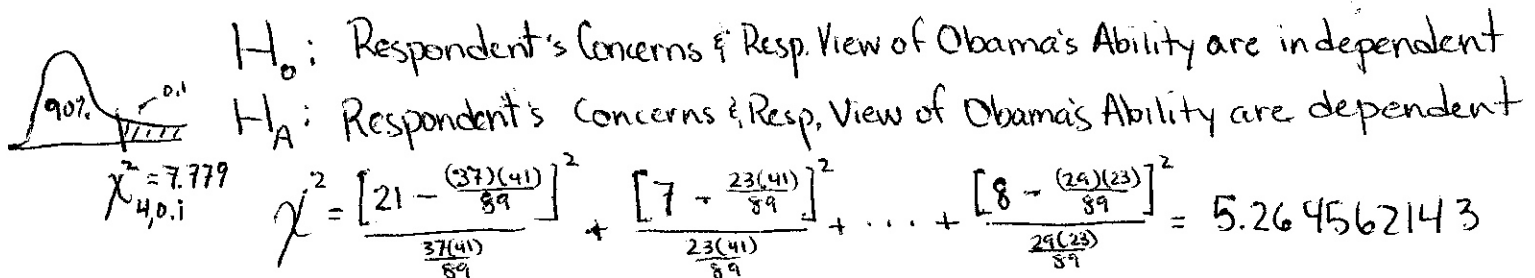 H₀: Respondent's Concerns & Resp. View of Obama's Ability are independent
90% 0.1
H_A: Respondent's Concerns & Resp. View of Obama's Ability are dependent
χ²_{4,0.1} = 7.779
χ² = [21 - (37)(41)/89]² / (37(41)/89) + [7 - 23(41)/89]² / (23(41)/89) + . . . + [8 - (29)(23)/89]² / (29(23)/89) = 5.264562143